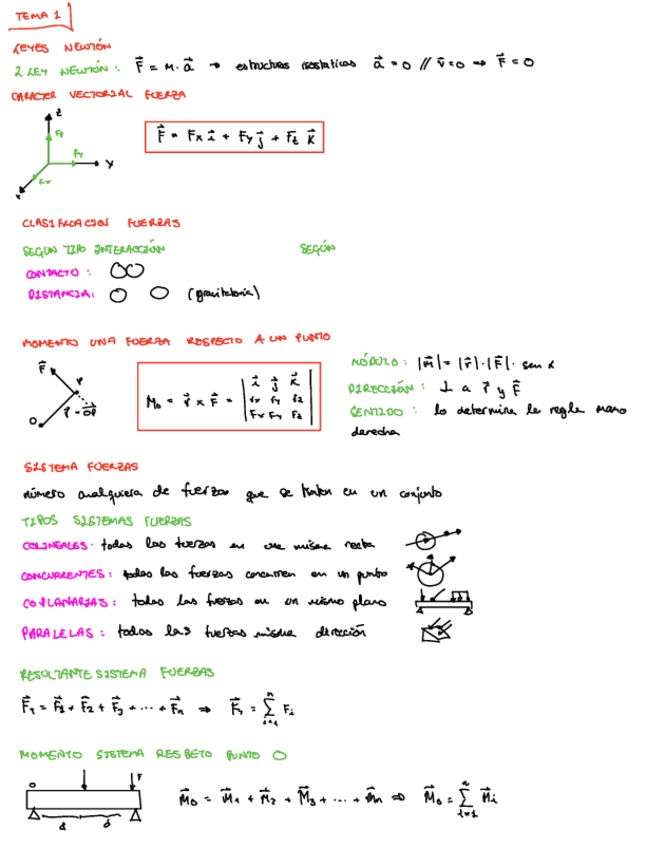 TEMA 1
LEYES NEWTON
2 LEY NEWTON : F⃗ = m · a⃗ → estructuras isostaticas a⃗ = 0 // v⃗ = 0 ⇒ F⃗ = 0
CARACTER VECTORIAL FUERZA
z
Fz
Fy
y
Fx
x
F⃗ = Fx i⃗ + Fy j⃗ + Fz k⃗
CLASIFICACION FUERZAS
SEGUN TIPO INTERACCIÓN
SEGÚN
CONTACTO :
DISTANCIA: (gravitatoria)
MOMENTO UNA FUERZA RESPECTO A UN PUNTO
F⃗
P
r⃗ = OP⃗
O
M₀ = r⃗ x F⃗ = | i⃗ j⃗ k⃗
rx ry rz
Fx Fy Fz |
MÓDULO : |M⃗| = |r⃗| · |F⃗| · sen α
DIRECCIÓN : ⊥ a r⃗ y F⃗
SENTIDO : lo determina la regla mano
derecha
SISTEMA FUERZAS
número cualquiera de fuerzas que se tratan en un conjunto
TIPOS SISTEMAS FUERZAS
COLINEALES · todas las fuerzas en una misma recta
CONCURRENTES : todas las fuerzas concurren en un punto
COPLANARIAS : todas las fuerzas en un mismo plano
PARALELAS : todas las fuerzas misma dirección
RESULTANTE SISTEMA FUERZAS
F⃗T = F⃗1 + F⃗2 + F⃗3 + ... + F⃗n ⇒ F⃗T = Σ(i=1, n) Fi
MOMENTO SISTEMA RESPETO PUNTO O
O
F
d
d
M⃗0 = M⃗1 + M⃗2 + M⃗3 + ... + m⃗n ⇒ M⃗0 = Σ(i=1, n) M⃗i